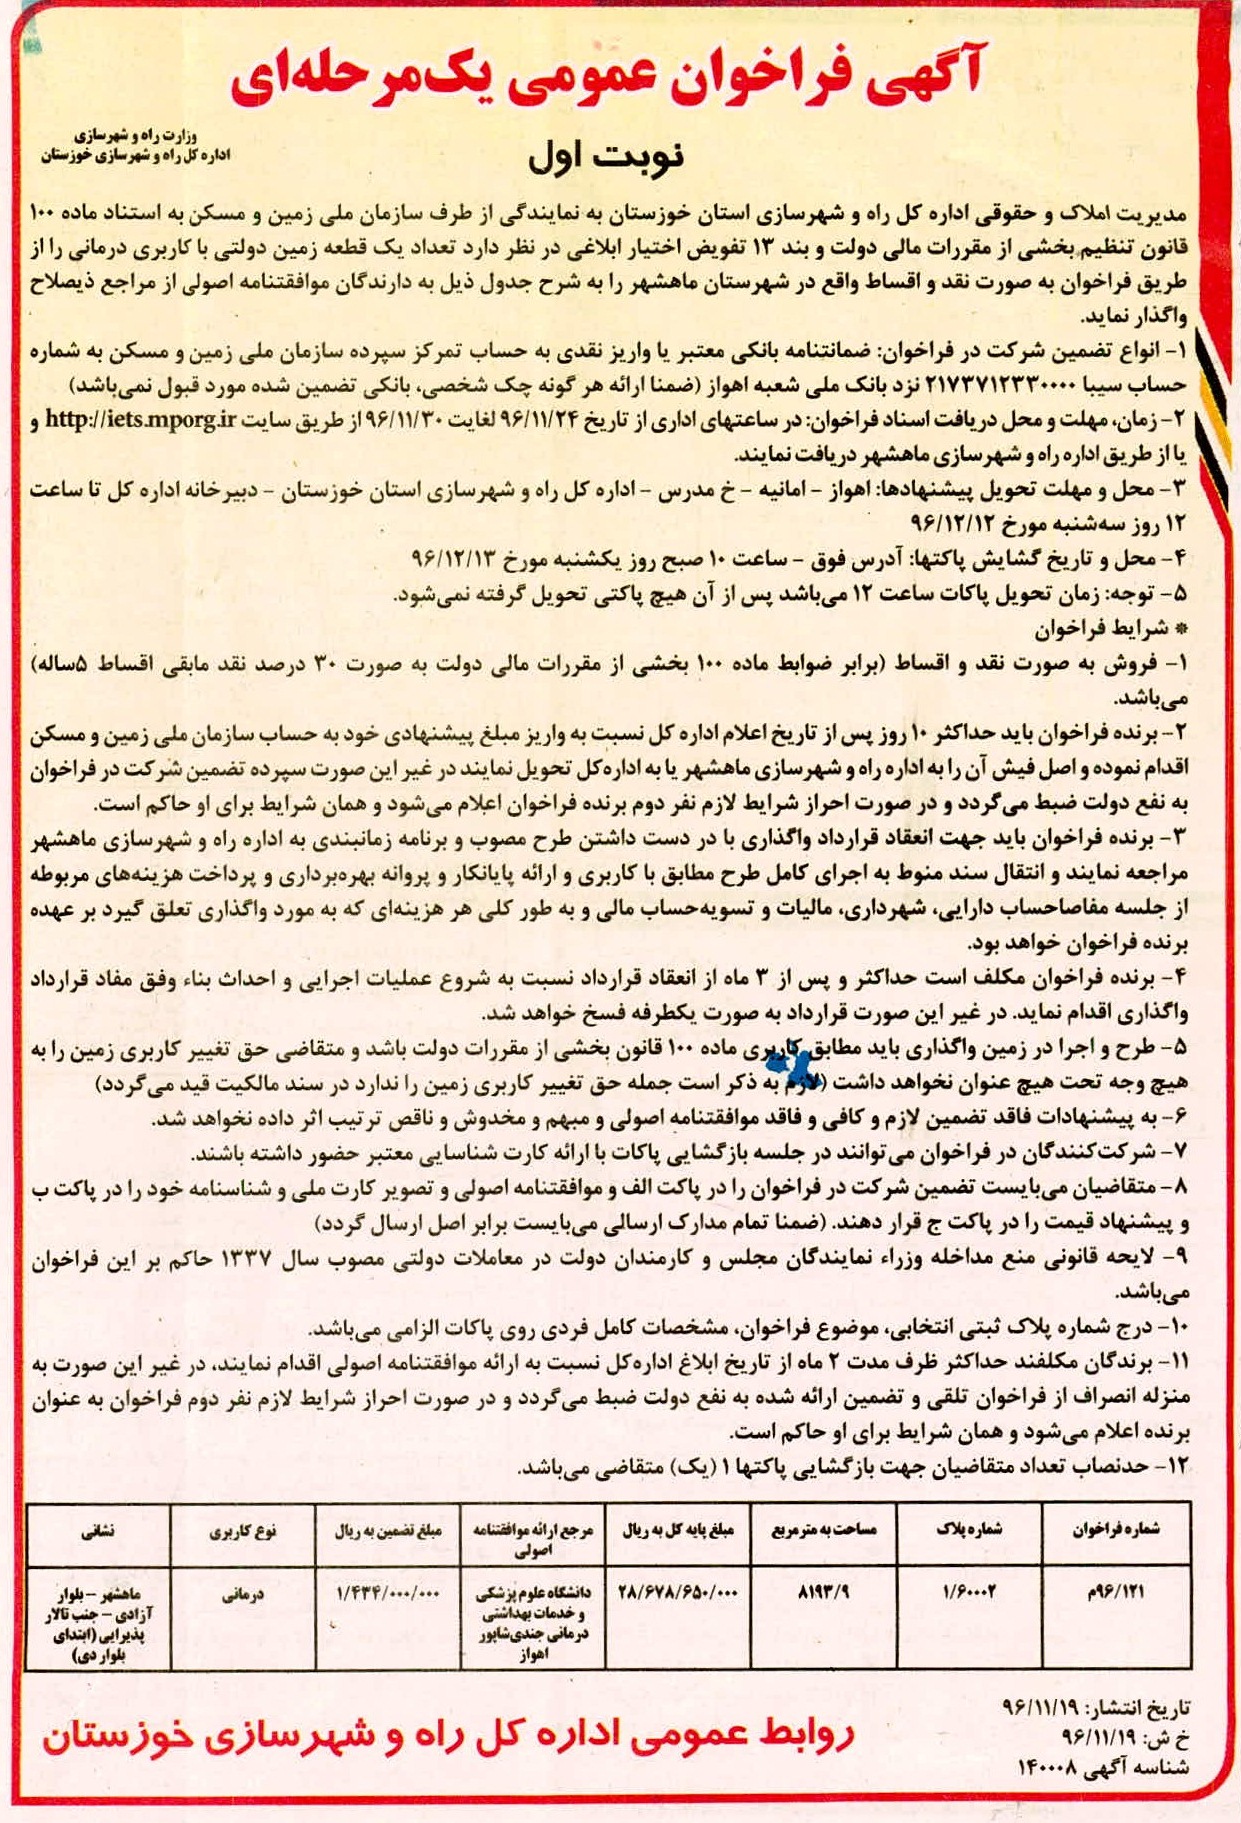 آگهی فراخوان عمومی یک‌مرحله‌ای
وزارت راه و شهرسازی
اداره کل راه و شهرسازی خوزستان
نوبت اول
مدیریت املاک و حقوقی اداره کل راه و شهرسازی استان خوزستان به نمایندگی از طرف سازمان ملی زمین و مسکن به استناد ماده ۱۰۰
قانون تنظیم بخشی از مقررات مالی دولت و بند ۱۳ تفویض اختیار ابلاغی در نظر دارد تعداد یک قطعه زمین دولتی با کاربری درمانی را از
طریق فراخوان به صورت نقد و اقساط واقع در شهرستان ماهشهر را به شرح جدول ذیل به دارندگان موافقتنامه اصولی از مراجع ذیصلاح
واگذار نماید.
۱- انواع تضمین شرکت در فراخوان: ضمانتنامه بانکی معتبر یا واریز نقدی به حساب تمرکز سپرده سازمان ملی زمین و مسکن به شماره
حساب سیبا ۲۱۷۳۷۱۲۳۳۰۰۰۰ نزد بانک ملی شعبه اهواز (ضمنا ارائه هر گونه چک شخصی، بانکی تضمین شده مورد قبول نمی‌باشد)
۲- زمان، مهلت و محل دریافت اسناد فراخوان: در ساعتهای اداری از تاریخ ۹۶/۱۱/۲۴ لغایت ۹۶/۱۱/۳۰ از طریق سایت http://iets.mporg.ir و
یا از طریق اداره راه و شهرسازی ماهشهر دریافت نمایند.
۳- محل و مهلت تحویل پیشنهادها: اهواز - امانیه - خ مدرس - اداره کل راه و شهرسازی استان خوزستان - دبیرخانه اداره کل تا ساعت
۱۲ روز سه‌شنبه مورخ ۹۶/۱۲/۱۲
۴- محل و تاریخ گشایش پاکتها: آدرس فوق - ساعت ۱۰ صبح روز یکشنبه مورخ ۹۶/۱۲/۱۳
۵- توجه: زمان تحویل پاکات ساعت ۱۲ می‌باشد پس از آن هیچ پاکتی تحویل گرفته نمی‌شود.
* شرایط فراخوان
۱- فروش به صورت نقد و اقساط (برابر ضوابط ماده ۱۰۰ بخشی از مقررات مالی دولت به صورت ۳۰ درصد نقد مابقی اقساط ۵ساله)
می‌باشد.
۲- برنده فراخوان باید حداکثر ۱۰ روز پس از تاریخ اعلام اداره کل نسبت به واریز مبلغ پیشنهادی خود به حساب سازمان ملی زمین و مسکن
اقدام نموده و اصل فیش آن را به اداره راه و شهرسازی ماهشهر یا به اداره‌کل تحویل نمایند در غیر این صورت سپرده تضمین شرکت در فراخوان
به نفع دولت ضبط می‌گردد و در صورت احراز شرایط لازم نفر دوم برنده فراخوان اعلام می‌شود و همان شرایط برای او حاکم است.
۳- برنده فراخوان باید جهت انعقاد قرارداد واگذاری با در دست داشتن طرح مصوب و برنامه زمانبندی به اداره راه و شهرسازی ماهشهر
مراجعه نمایند و انتقال سند منوط به اجرای کامل طرح مطابق با کاربری و ارائه پایانکار و پروانه بهره‌برداری و پرداخت هزینه‌های مربوطه
از جلسه مفاصاحساب دارایی، شهرداری، مالیات و تسویه‌حساب مالی و به طور کلی هر هزینه‌ای که به مورد واگذاری تعلق گیرد بر عهده
برنده فراخوان خواهد بود.
۴- برنده فراخوان مکلف است حداکثر و پس از ۳ ماه از انعقاد قرارداد نسبت به شروع عملیات اجرایی و احداث بناء وفق مفاد قرارداد
واگذاری اقدام نماید. در غیر این صورت قرارداد به صورت یکطرفه فسخ خواهد شد.
۵- طرح و اجرا در زمین واگذاری باید مطابق کاربری ماده ۱۰۰ قانون بخشی از مقررات دولت باشد و متقاضی حق تغییر کاربری زمین را به
هیچ وجه تحت هیچ عنوان نخواهد داشت (لازم به ذکر است جمله حق تغییر کاربری زمین را ندارد در سند مالکیت قید می‌گردد)
۶- به پیشنهادات فاقد تضمین لازم و کافی و فاقد موافقتنامه اصولی و مبهم و مخدوش و ناقص ترتیب اثر داده نخواهد شد.
۷- شرکت‌کنندگان در فراخوان می‌توانند در جلسه بازگشایی پاکات با ارائه کارت شناسایی معتبر حضور داشته باشند.
۸- متقاضیان می‌بایست تضمین شرکت در فراخوان را در پاکت الف و موافقتنامه اصولی و تصویر کارت ملی و شناسنامه خود را در پاکت ب
و پیشنهاد قیمت را در پاکت ج قرار دهند. (ضمنا تمام مدارک ارسالی می‌بایست برابر اصل ارسال گردد)
۹- لایحه قانونی منع مداخله وزراء نمایندگان مجلس و کارمندان دولت در معاملات دولتی مصوب سال ۱۳۳۷ حاکم بر این فراخوان
می‌باشد.
۱۰- درج شماره پلاک ثبتی انتخابی، موضوع فراخوان، مشخصات کامل فردی روی پاکات الزامی می‌باشد.
۱۱- برندگان مکلفند حداکثر ظرف مدت ۲ ماه از تاریخ ابلاغ اداره‌کل نسبت به ارائه موافقتنامه اصولی اقدام نمایند، در غیر این صورت به
منزله انصراف از فراخوان تلقی و تضمین ارائه شده به نفع دولت ضبط می‌گردد و در صورت احراز شرایط لازم نفر دوم فراخوان به عنوان
برنده اعلام می‌شود و همان شرایط برای او حاکم است.
۱۲- حدنصاب تعداد متقاضیان جهت بازگشایی پاکتها ۱ (یک) متقاضی می‌باشد.
شماره فراخوان شماره پلاک مساحت به مترمربع مبلغ پایه کل به ریال مرجع ارائه موافقتنامه مبلغ تضمین به ریال نوع کاربری نشانی
اصولی
۹۶/۱۲۱م ۱/۶۰۰۰۲ ۸۱۹۳/۹ ۲۸/۶۷۸/۶۵۰/۰۰۰ دانشگاه علوم پزشکی ۱/۴۳۴/۰۰۰/۰۰۰ درمانی ماهشهر - بلوار
و خدمات بهداشتی آزادی - جنب تالار
درمانی جندی‌شاپور پذیرایی (ابتدای
اهواز بلوار دی)
تاریخ انتشار: ۹۶/۱۱/۱۹
خ ش: ۹۶/۱۱/۱۹
شناسه آگهی ۱۴۰۰۰۸
روابط عمومی اداره کل راه و شهرسازی خوزستان